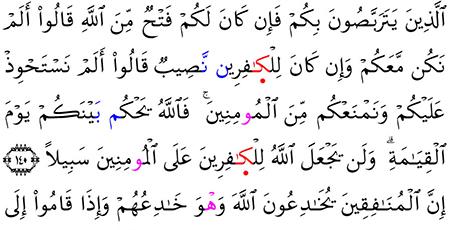 الَّذِينَ يَتَرَبَّصُونَ بِكُمْ فَإِن كَانَ لَكُمْ فَتْحٌ مِّنَ اللَّهِ قَالُوا أَلَمْ
نَكُن مَّعَكُمْ وَإِن كَانَ لِلْكَٰفِرِين نَّصِيبٌ قَالُوا أَلَمْ نَسْتَحْوِذْ
عَلَيْكُمْ وَنَمْنَعْكُم مِّنَ الْمُومِنِينَ ۚ فَاللَّهُ يَحْكُم بَيْنَكُمْ يَوْمَ
الْقِيَامَةِ ۗ وَلَن يَجْعَلَ اللَّهُ لِلْكَٰفِرِينَ عَلَى الْمُومِنِينَ سَبِيلاً ﴿١٤٠﴾
إِنَّ الْمُنَافِقِينَ يُخَادِعُونَ اللَّهَ وَهْوَ خَادِعُهُمْ وَإِذَا قَامُوا إِلَى